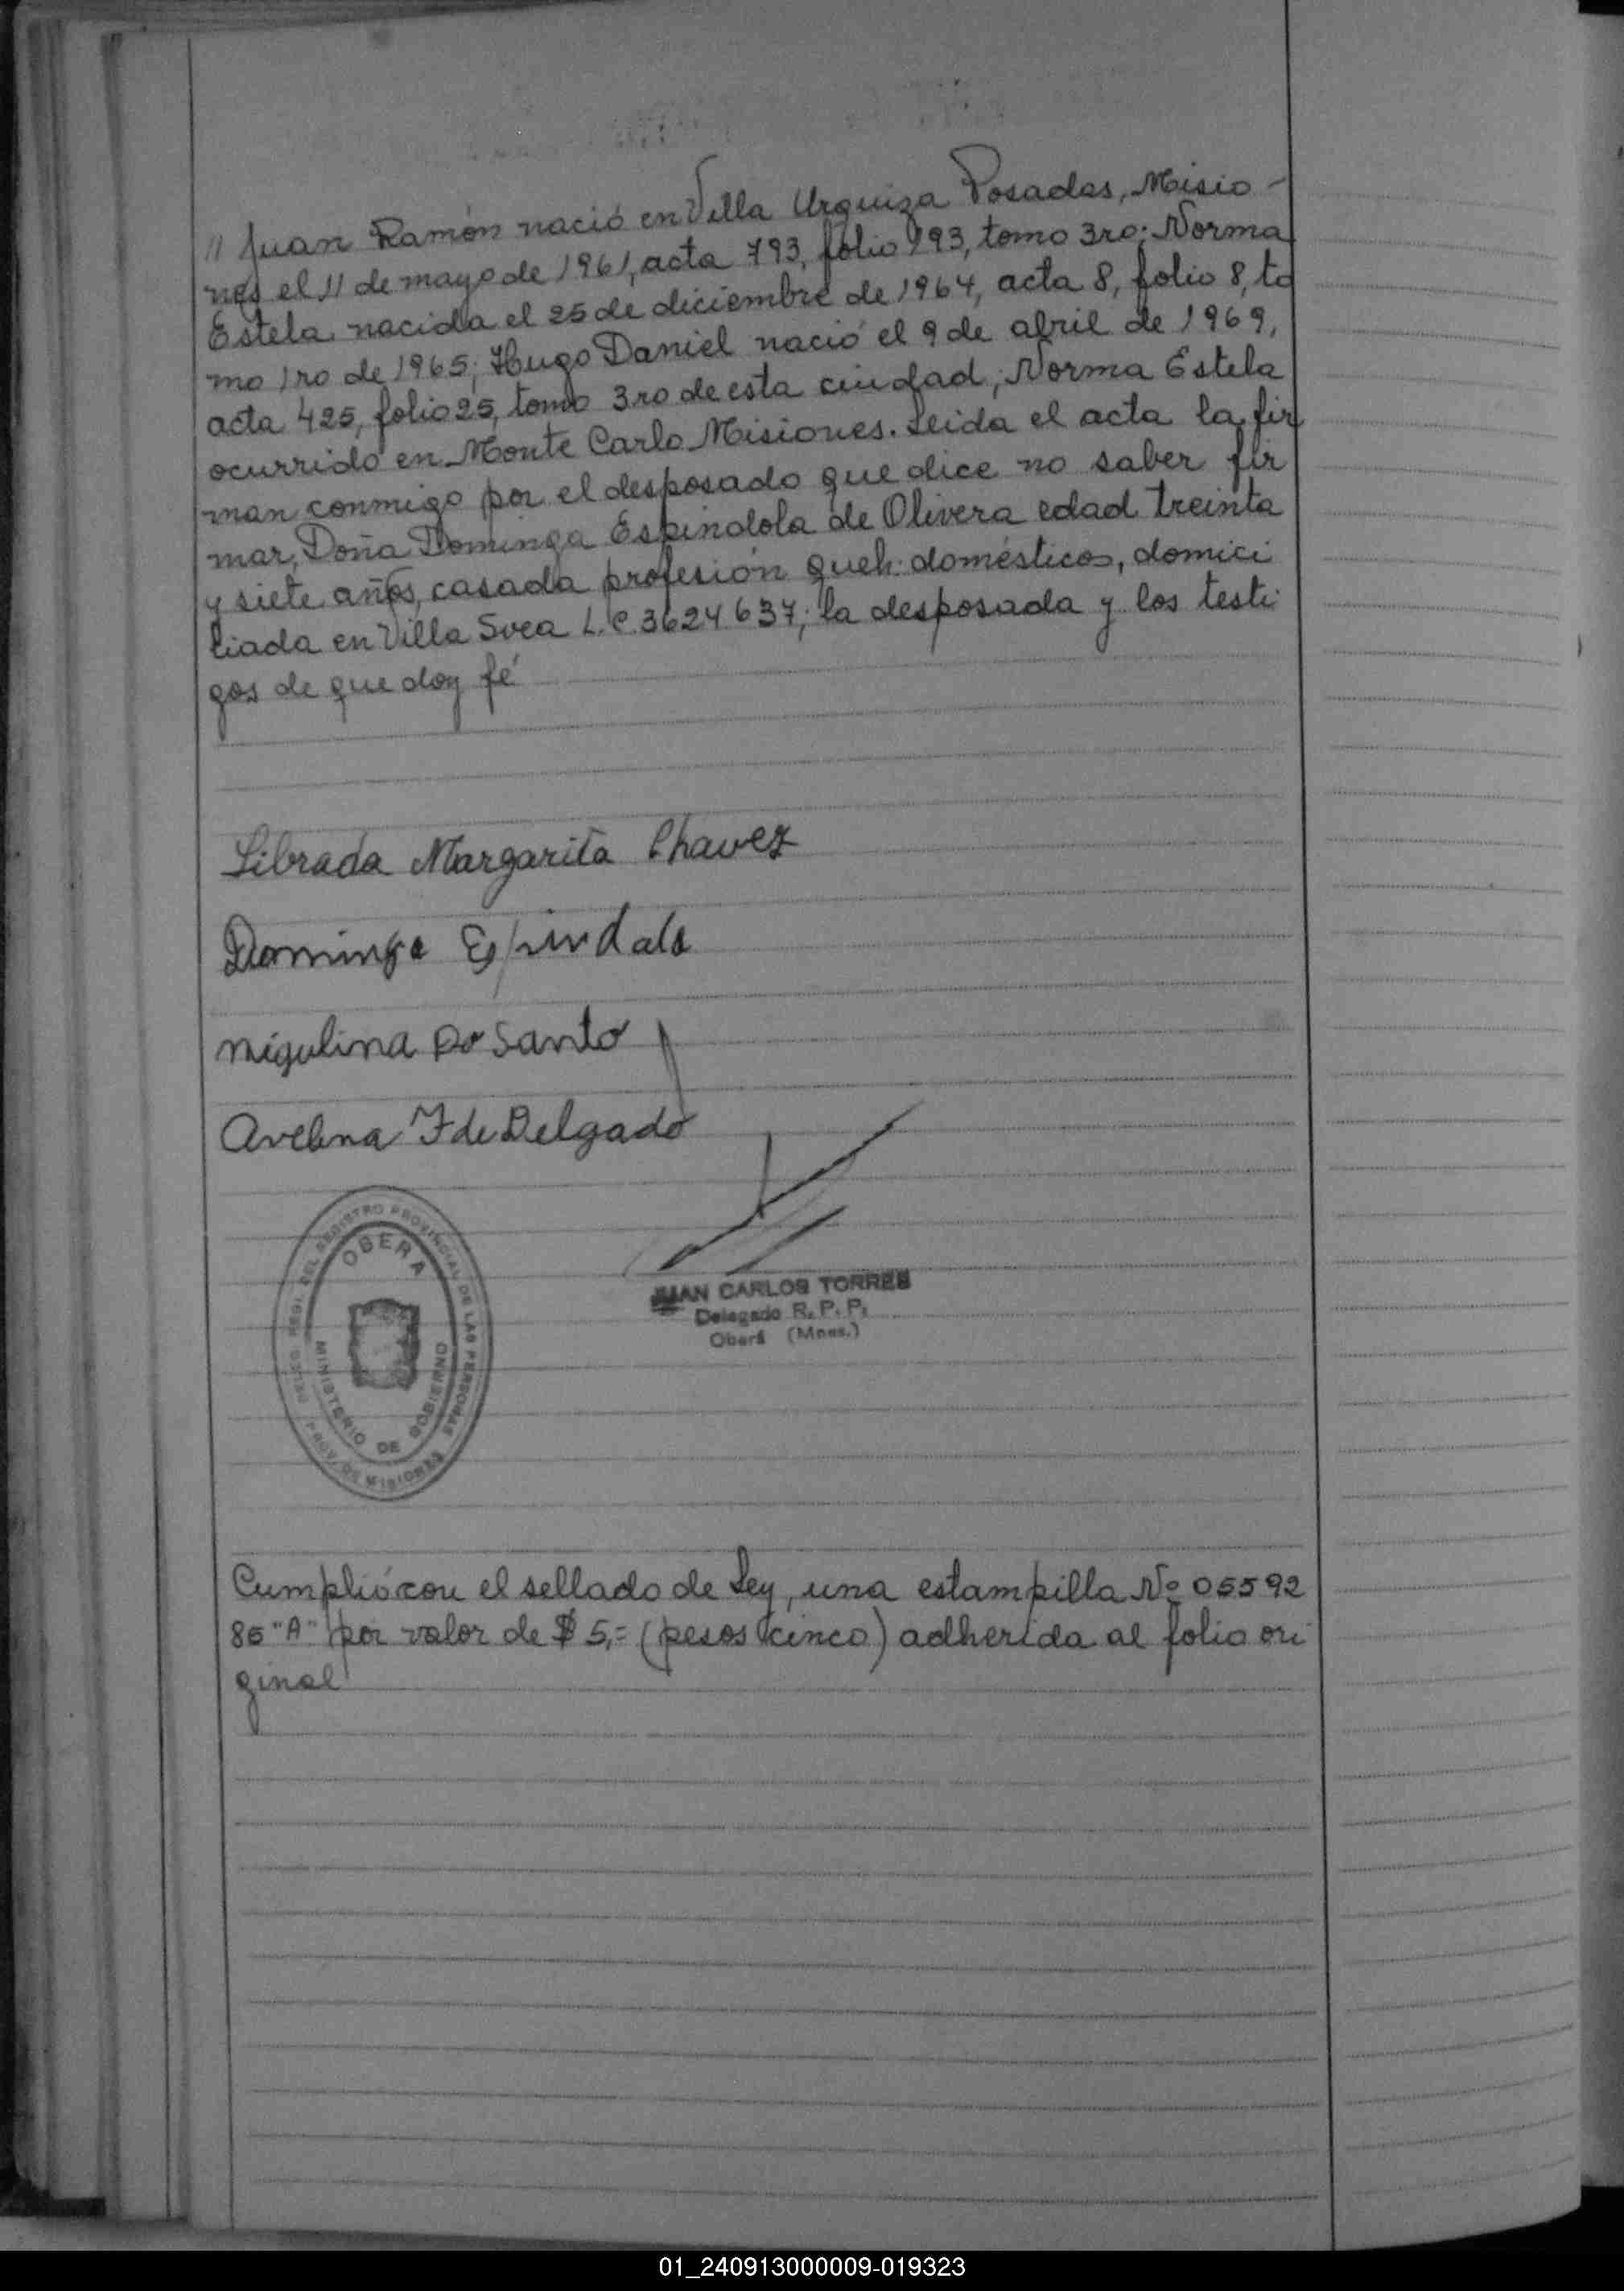 // Juan Ramón nació en Villa Urquiza Posadas, Misio-
nes el 11 de mayo de 1961, acta 793, folio 193, tomo 3ro; Norma
Estela nacida el 25 de diciembre de 1964, acta 8, folio 8, to
mo 1ro de 1965; Hugo Daniel nació el 9 de abril de 1969,
acta 425, folio 25, tomo 3ro de esta ciudad; Norma Estela
ocurrido en Monte Carlo Misiones. Leida el acta la fir
man conmigo por el desposado que dice no saber fir
mar, Doña Dominga Espindola de Olivera edad treinta
y siete años, casada profesión queh. domésticos, domici
liada en Villa Svea L.C. 3624637; la desposada y los testi
gos de que doy fé
Librada Margarita Chavez
Dominga Espindala
Migulina Do Santo
Avelina F de Delgado
DEL REGISTRO PROVINCIAL DE LAS PERSONAS
PROV. DE MISIONES
OBERA
MINISTERIO DE GOBIERNO
JUAN CARLOS TORRES
Delegado R. P. P.
Oberá (Mnes.)
Cumplió con el sellado de Ley, una estampilla Nº 05592
86 "A" por valor de $ 5,= (pesos cinco) adherida al folio ori
ginal
01_240913000009-019323